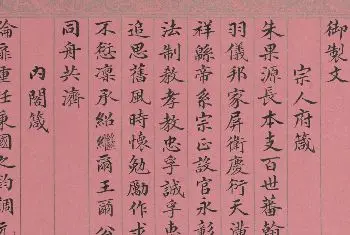 御製文
宗人府箴
朱果源長本支百世蕃翰
羽儀邦家屏衛慶衍天潢
祥緜帝系宗正設官永彰
法制教孝教忠孚誠孚
追思舊風時懷勉勵作求
不愆凜承紹繼爾王爾公
同舟共濟
内閣箴
綸扉重任秉國之鈞調元